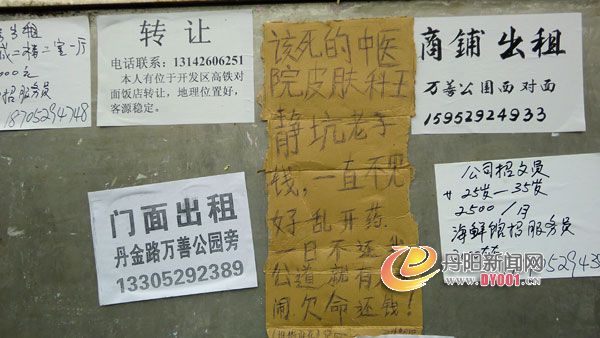 出租
二楼二室一厅
000元
招服务员
18705294748
转让
电话联系：13142606251
本人有位于开发区高铁对
面饭店转让，地理位置好，
客源稳定。
该死的中医
院皮肤科王
静坑老子
钱，一直不见
好乱开药.
一日不还
公道就有人
闹.欠命还钱！
商铺出租
万善公园面对面
15952924933
门面出租
丹金路万善公园旁
13305292389
公司招文员
廿25岁—35岁
2500/月
海鲜馆招服务员
052943
丹阳新闻网
WWW.DY001.CN